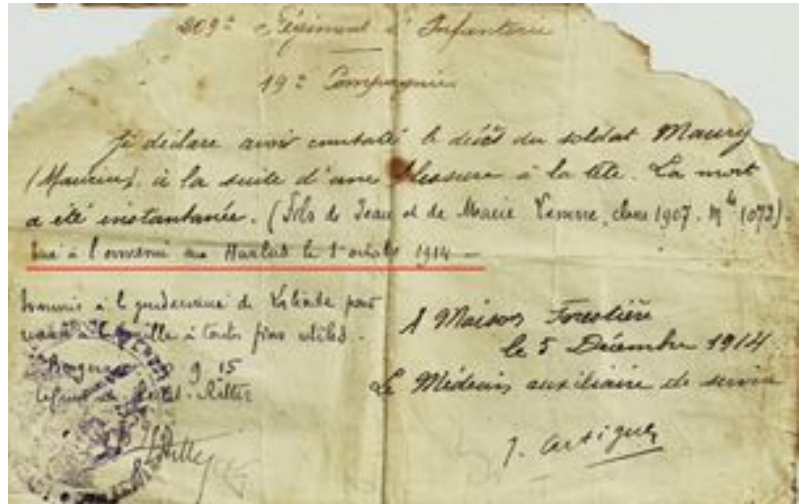 209e Régiment d'Infanterie
19e Compagnie
Je déclare avoir constaté le décès du soldat Maury
(Maurice), à la suite d'une blessure à la tête. La mort
a été instantanée. (Fils de Jean et de Marie classe 1907. Mle 1072).
Tué à l'ennemi aux Hurlus le 1er octobre 1914 -
Transmis à la gendarmerie de pour
à la famille à toutes fins utiles.
9 15
A Maison Forestière
le 5 Décembre 1914
Le Médecin auxiliaire de service
J. Artigues